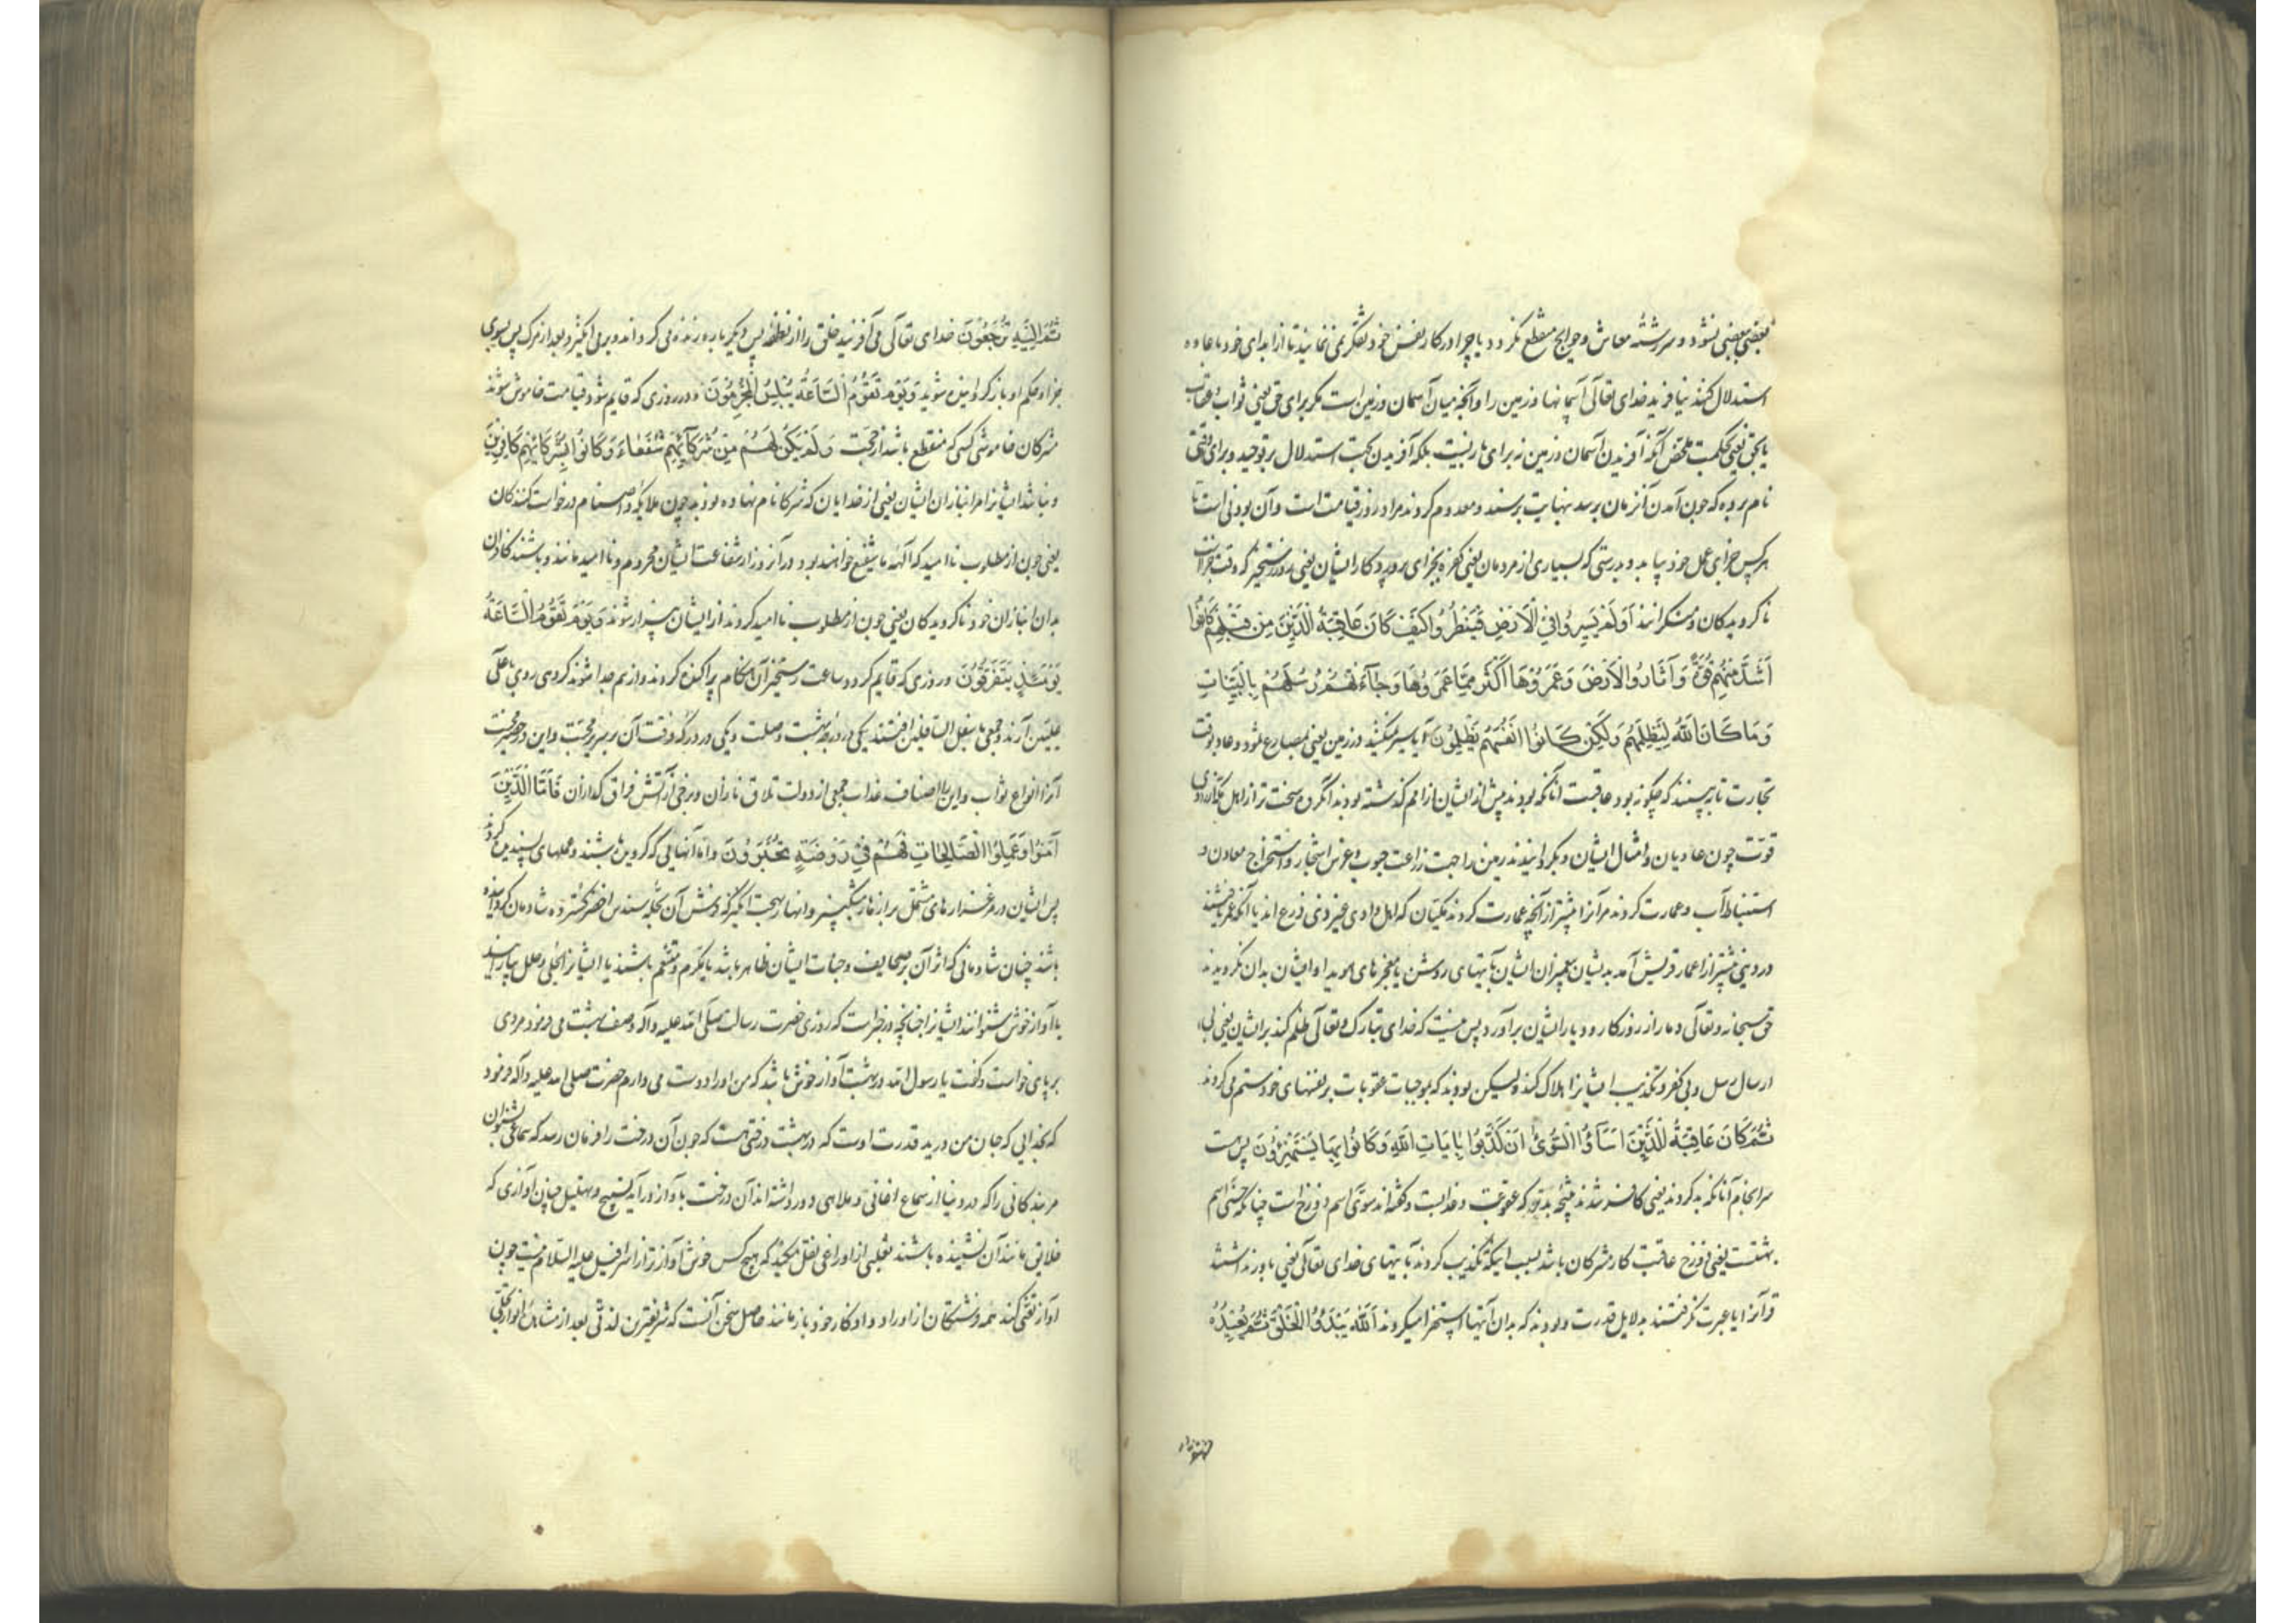 بعضی ببعضی نشود و سررشته معاش و حوایج منقطع نگردد یا چرا در کار نفس خود تفکر نمی نمایند تا از ابدای خود باعاده
استدلال کنند نیافرید خدای تعالی آسمانها و زمین را و آنچه میان آسمان و زمین است مگر برای حق یعنی ثواب و عقاب
یا بحق یعنی بحکمت ملخص آنکه آفریدن آسمان و زمین نه برای بلکه آفریدن بجهت استدلال بر توحید و برای وقتی
نام برده که چون آمدن آنزمان برسد بنهایت برسند و معدوم گردند مراد روز قیامت است و آن بودنی است تا
هر کس جزای عمل خود بیابد و بدرستی که بسیاری از مردمان یعنی کفره بجزای پروردگار ایشان یعنی بروز رستخیز که وقت جزاست
ناگرویدگان و منکرانند اَوَلَمْ يَسِيرُوا فِي الْاَرْضِ فَيَنْظُرُوا كَيْفَ كَانَ عَاقِبَةُ الَّذِينَ مِن قَبْلِهِمْ كَانُوا
اَشَدَّ مِنْهُمْ قُوَّةً وَ اَثَارُوا الْاَرْضَ وَعَمَرُوهَا اَكْثَرَ مِمَّا عَمَرُوهَا وَجَآءَتْهُمْ رُسُلُهُمْ بِالْبَيِّنَاتِ
وَ مَا كَانَ اللّٰهُ لِيَظْلِمَهُمْ وَلٰكِن كَانُوا اَنْفُسَهُمْ يَظْلِمُونَ آیا سیر نمیکنند در زمین یعنی بمصارع ثمود و عاد بوقت
تجارت تا ببینند که چگونه بود عاقبت آنانکه بودند پیش از ایشان از امم گذشته بودند آنگروه سخت تر از اهل مکه از روی
قوت چون عادیان و امثال ایشان و بگردانیدند زمین را جهت زراعت حبوب و غرس اشجار و استخراج معادن و
استنباط آب و عمارت کردند مر آنرا بیشتر از آنچه عمارت کردند مکیان که اهل وادی غیر ذی زرع اند یا آنکه عمر یافتند
در دنیی بیشتر از اعمار قریش آمد بدیشان پیغمبران ایشان بآیتهای روشن یا معجزهای هویدا و ایشان بدان نگرویدند
حق سبحانه و تعالی دمار از روزگار و دیار ایشان برآورد پس نیست که خدای تبارک و تعالی ظلم کند بر ایشان یعنی بی
ارسال رسل و بی کفر و تکذیب ایشانرا هلاک کند ولیکن بودند که بموجبات عقوبات بر نفسهای خود ستم می کردند
ثُمَّ كَانَ عَاقِبَةَ الَّذِينَ اَسَآؤُا السُّوٓاٰى اَنْ كَذَّبُوا بِاٰيَاتِ اللّٰهِ وَ كَانُوا بِهَا يَسْتَهْزِؤُنَ پس هست
سرانجام آنانکه بد کردند یعنی کافر شدند نتیجه بد که عقوبت و عذابست و گفته اند سوئی اسم دوزخ است چنانکه حسنی اسم
بهشتست یعنی دوزخ عاقبت کار مشرکان باشد بسبب اینکه تکذیب کردند بآیتهای خدای تعالی یعنی باور نداشتند
قرآنرا یا عبرت نگرفتند بدلایل قدرت و بودند که بدان آیتها استهزا میکردند اَللّٰهُ يَبْدَؤُا الْخَلْقَ ثُمَّ يُعِيدُهُ
ثُمَّ اِلَيْهِ تُرْجَعُونَ خدای تعالی می آفریند خلق را از نطفه پس دیگر باره زنده می گرداند و بر می انگیزد بعد از مرگ پس بسوی
جزا و حکم او باز گردانیده شوید وَيَوْمَ تَقُومُ السَّاعَةُ يُبْلِسُ الْمُجْرِمُونَ و در روزی که قایم شود قیامت خاموش شوند
مشرکان خاموشی کسی که منقطع باشد از حجت وَ لَمْ يَكُنْ لَهُمْ مِنْ شُرَكَآئِهِمْ شُفَعَاءُ وَ كَانُوا بِشُرَكَائِهِمْ كَافِرِينَ
و نباشد ایشانرا مر انبازان ایشان یعنی از خدایان که شرکا نام نهاده بودند چون ملایکه و اصنام درخواست کنندگان
یعنی چون از مطلوب ناامید که آلهه ما شفیع خواهند بود در آنروز از شفاعت ایشان محروم و ناامید مانند و باشند کافران
بدان انبازان خود ناگرویدگان یعنی چون از مطلوب ناامید گردند از ایشان بیزار شوند وَيَوْمَ تَقُومُ السَّاعَةُ
يَوْمَئِذٍ يَتَفَرَّقُونَ و روزی که قایم گردد ساعت رستخیز آن هنگام پراکنده گردند و از هم جدا شوند گروهی روی باعلی
علیین آرند و جمعی باسفل السافلین افتند یکی در درجه بهشت وصلت و یکی در درکه فرقت آن بر سریر محبت و این در حجره محنت
آنرا انواع ثواب و این را اصناف عذاب جمعی از دولت تلاق نازان و برخی از آتش فراق گدازان فَاَمَّا الَّذِينَ
اٰمَنُوا وَعَمِلُوا الصَّالِحَاتِ فَهُمْ فِي رَوْضَةٍ يُحْبَرُونَ و اما آنهایی که گرویده باشند و عملهای پسندیده کردند
پس ایشان در مرغزارهای مشتمل بر ازهار و انهار بهجت انگیز که فرش آن سندس اخضر گسترده شادمان گردانیده
باشند چنان شادمانی که اثر آن بر صحایف وجنات ایشان ظاهر باشد یا مکرم و منعم باشند یا ایشانرا بحلی و حلل بیارایند
یا آواز خوش شنوانند ایشانرا چنانچه در خبر است که روزی حضرت رسالت صلی الله علیه و آله وصف بهشت می فرمود مردی
بر پای خواست و گفت یا رسول الله در بهشت آواز خوش باشد که من او را دوست می دارم حضرت صلی الله علیه و آله فرمود
که بخدایی که جان من در ید قدرت اوست که در بهشت درختی هست که چون آن درخت را فرمان رسد که سماعی بشنوان
مر بندگانی را که در دنیا از سماع اغانی و ملاهی دور داشته اند آن درخت باواز در آید بتسبیح و تهلیل چنان آوازی که
خلایق مانند آن نشنیده باشند ثعلبی از اوزاعی نقل میکند که هیچ کس خوش آوازتر از اسرافیل علیه السلام نیست چون
آواز تغنی کند همه فرشتگان از اوراد و اذکار خود باز مانند حاصل سخن آنست که شریفترین لذتی بعد از مشاهده انوار تجلی